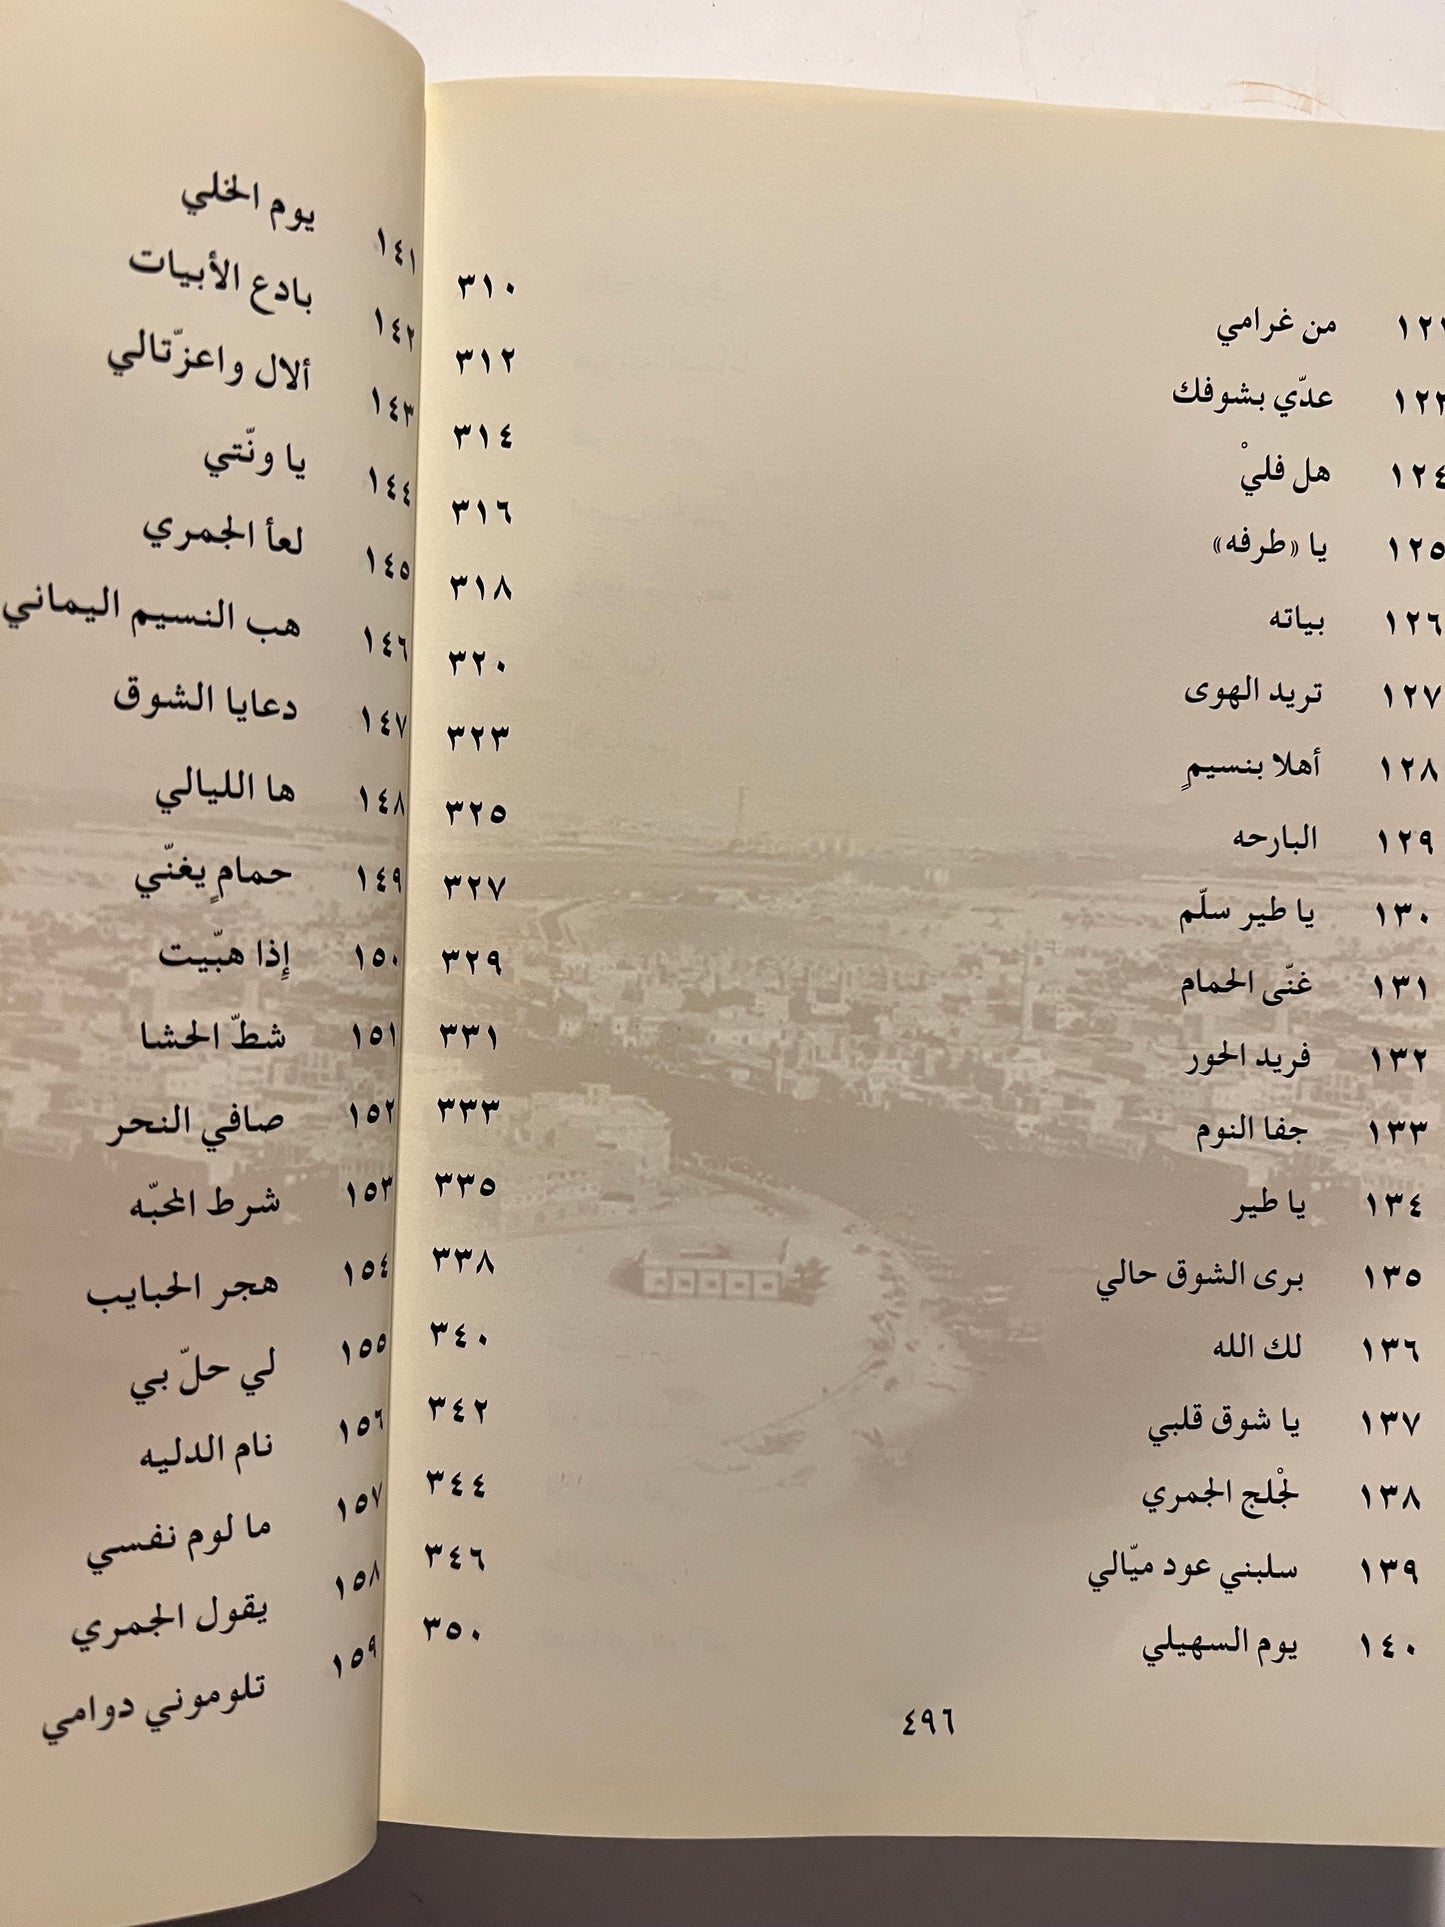 ١٢٢ من غرامي ٣١٠
١٢٣ عدّي بشوفك ٣١٢
١٢٤ هل فليْ ٣١٤
١٢٥ يا «طرفه» ٣١٦
١٢٦ بياته ٣١٨
١٢٧ تريد الهوى ٣٢٠
١٢٨ أهلا بنسيمٍ ٣٢٣
١٢٩ البارحه ٣٢٥
١٣٠ يا طير سلّم ٣٢٧
١٣١ غنّى الحمام ٣٢٩
١٣٢ فريد الحور ٣٣١
١٣٣ جفا النوم ٣٣٣
١٣٤ يا طير ٣٣٥
١٣٥ برى الشوق حالي ٣٣٨
١٣٦ لك الله ٣٤٠
١٣٧ يا شوق قلبي ٣٤٢
١٣٨ لجْلج الجمري ٣٤٤
١٣٩ سلبني عود ميّالي ٣٤٦
١٤٠ يوم السهيلي ٣٥٠
٤٩٦
١٤١ يوم الخلي
١٤٢ بادع الأبيات
١٤٣ ألال واعزّتالي
١٤٤ يا ونّتي
١٤٥ لعأ الجمري
١٤٦ هب النسيم اليماني
١٤٧ دعايا الشوق
١٤٨ ها الليالي
١٤٩ حمامٍ يغنّي
١٥٠ إذا هبّيت
١٥١ شطّ الحشا
١٥٢ صافي النحر
١٥٣ شرط المحبّه
١٥٤ هجر الحبايب
١٥٥ لي حلّ بي
١٥٦ نام الدليه
١٥٧ ما لوم نفسي
١٥٨ يقول الجمري
١٥٩ تلوموني دوامي